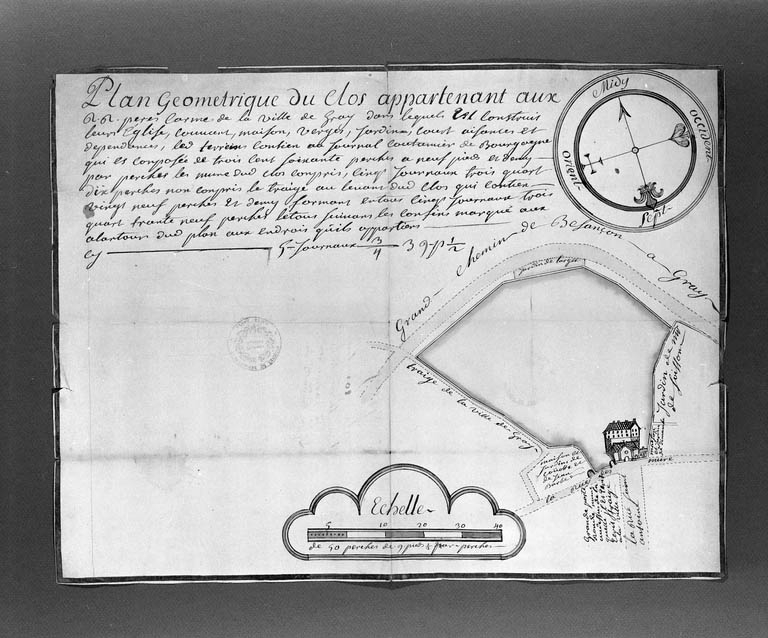 Plan Geometrique du Clos appartenant aux
R R peres Carme de la ville de Gray dans lequels Est Construit
leurs Eglise, Couvent, maison, Verger, Jardins, Court aisances et
dependances, led terrein contien au Journal coutumier de Bourgogne
qui Et Conposée de trois Cent soixante perches a neuf pied et demy
par perches les mure dud Clos conpris, Cinq Journaux trois quart
dix perches non conpris le traige au levant dud Clos qui contien
Vingt neuf perches et demy formant entous Cinq Journaux trois
quart trante neuf perches letous suivans les confins marqué aux
alantour dud plan aux endrois quils appartiens
Cy 5 Journaux 3/4 39 p 1/2
Midy
occident
Sept
orient
Grand chemin de Besançon a Gray
Jardin de
traige de la ville de Gray
Jardin de
maison et Jardin de
de Jean
la rue des
la rue
Echelle
5 10 20 30 40
de 40 perches de 9 pied 1/2 par perches